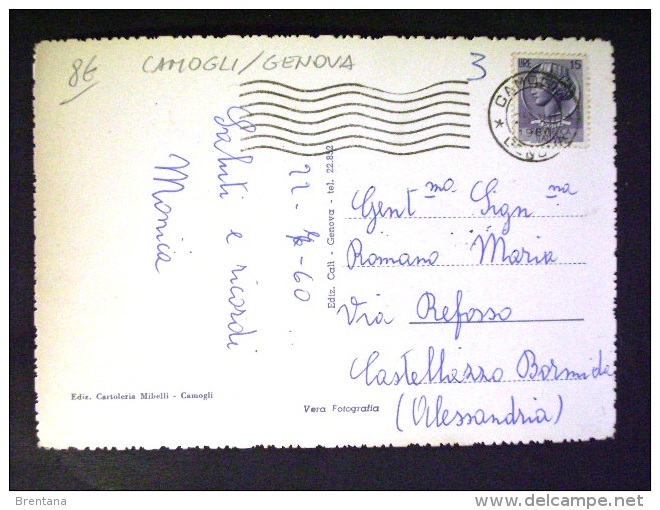 8€
CAMOGLI/GENOVA
3
LIRE 15
Saluti e ricordi
Monica
Ediz. Calì - Genova - tel. 22.852
Gent.ma Sign.na
Romano Maria
Via Refosso
Castellazzo Bormida
(Alessandria)
Ediz. Cartoleria Mibelli - Camogli
Vera Fotografia
Brentana
delcampe.net